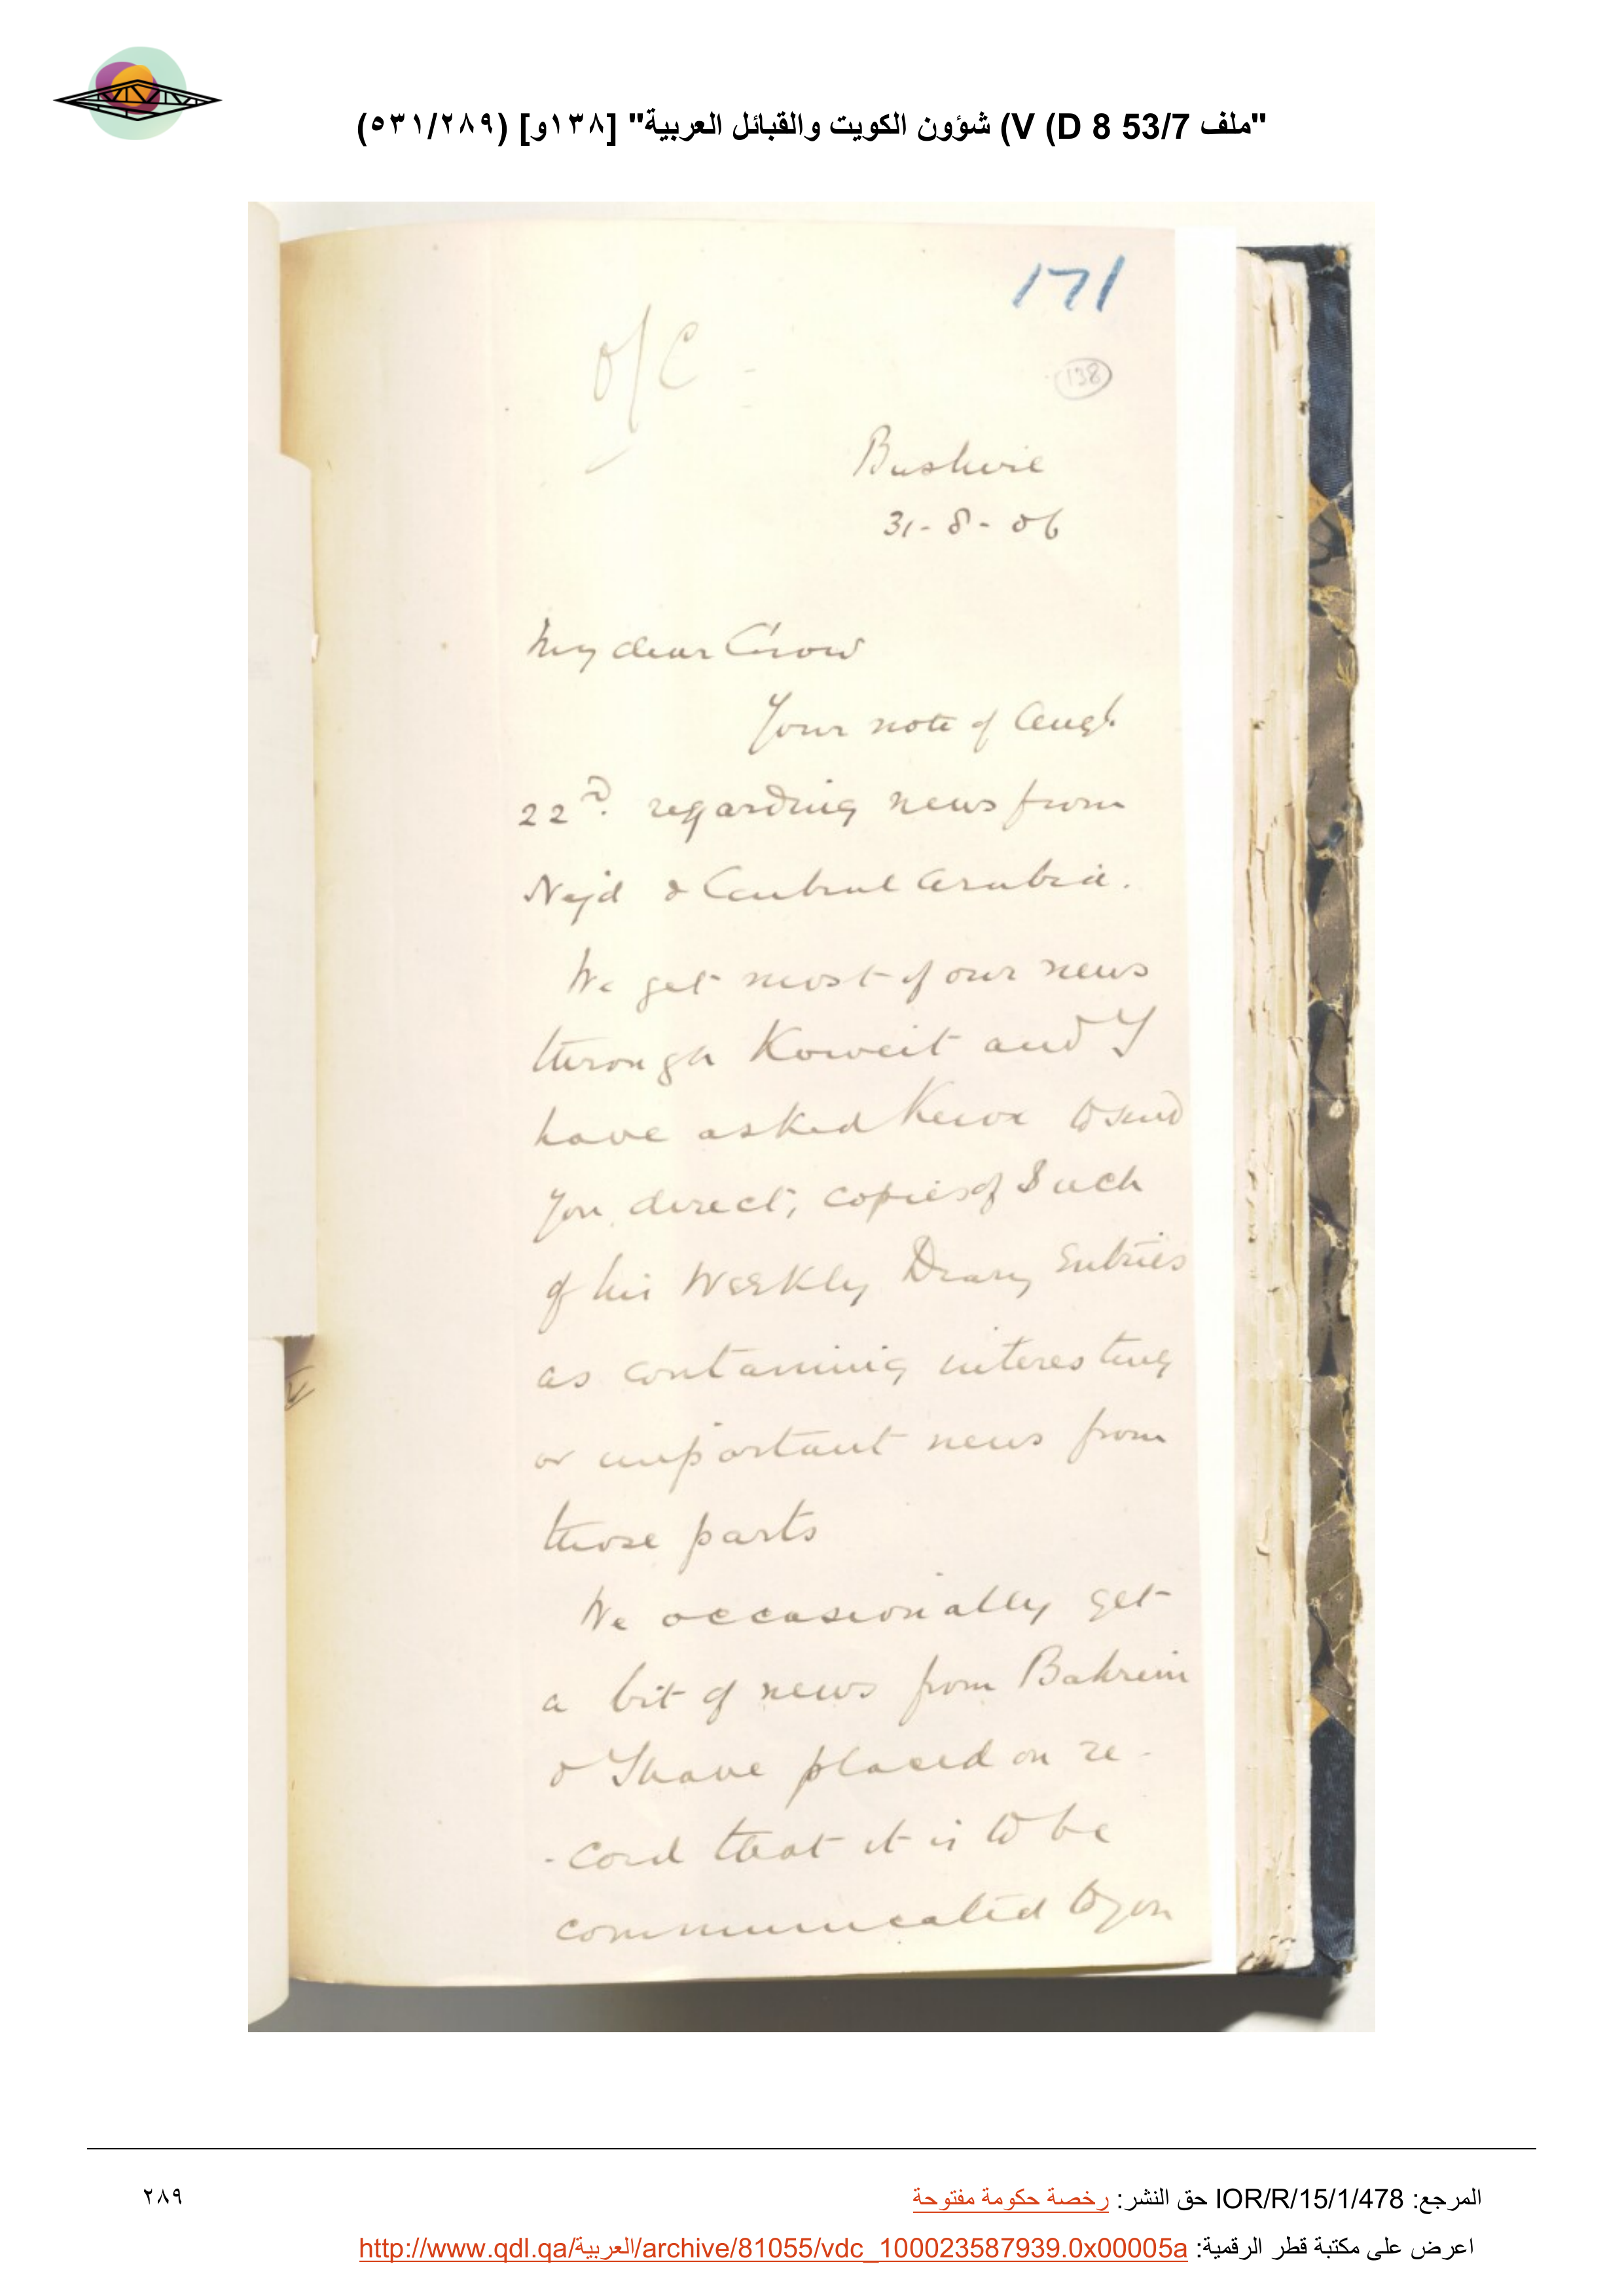 "ملف 53/7 V (D 8) شؤون الكويت والقبائل العربية" [١٣٨و] (٥٣١/٢٨٩)
171
O/C -
138
Bushire
31-8-06
My dear Crow
Your note of Augt
22nd. regarding news from
Nejd & Central Arabia.
We get most of our news
through Koweit and I
have asked Knox to send
you direct, copies of such
of his Weekly Diary Entries
as containing interesting
or important news from
those parts
We occasionally get
a bit of news from Bahrein
& I have placed on re-
-cord that it is to be
communicated to you
المرجع: IOR/R/15/1/478 حق النشر: رخصة حكومة مفتوحة
٢٨٩
اعرض على مكتبة قطر الرقمية: http://www.qdl.qa/العربية/archive/81055/vdc_100023587939.0x00005a